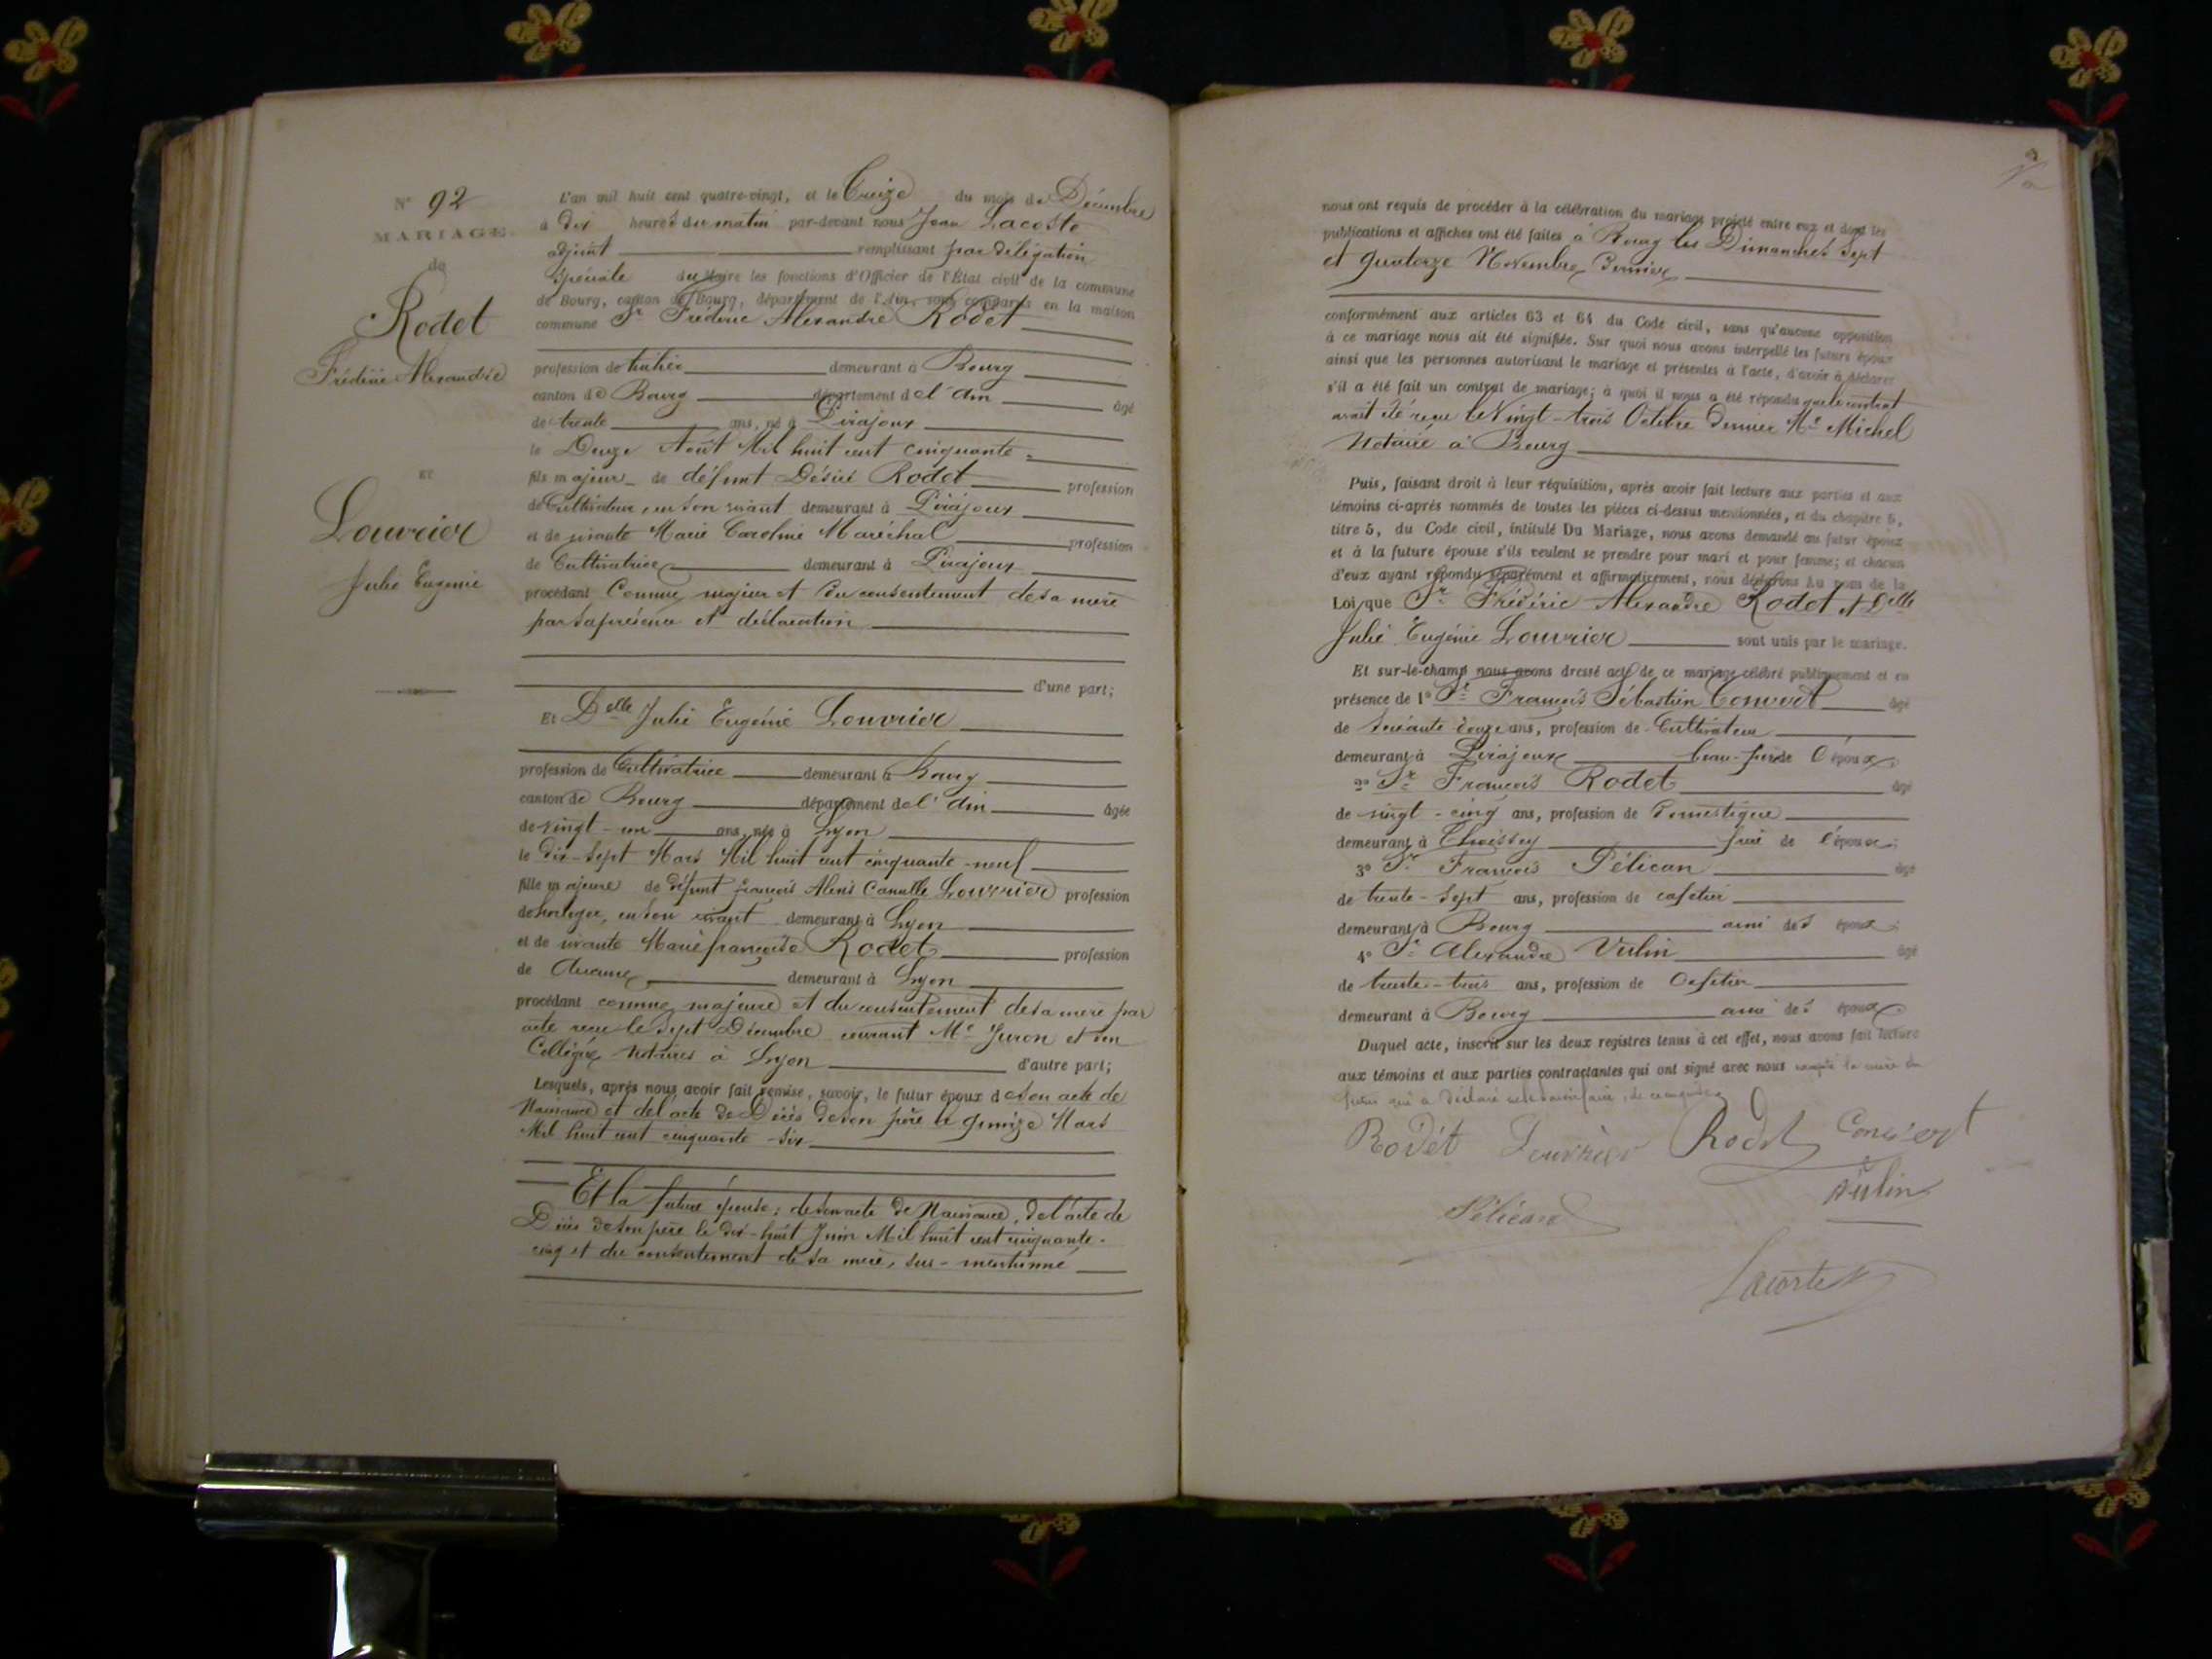 N° 92
MARIAGE
de
Rodet
Frédéric Alexandre
ET
Louvrier
Julie Eugénie
L'an mil huit cent quatre-vingt, et le Treize du mois de Décembre
à dix heures du matin par-devant nous Jean Lacoste
adjoint remplissant par délégation
Spéciale du Maire les fonctions d'Officier de l'État civil de la commune
de Bourg, canton de Bourg, département de l'Ain, sont comparus en la maison
commune Sr Frédéric Alexandre Rodet
profession de demeurant à Bourg
canton de Bourg département de l'Ain âgé
de trente ans, né à Pirajoux
le Douze Août Mil huit cent cinquante
fils majeur de défunt Désiré Rodet profession
de Cultivateur, en son vivant demeurant à Pirajoux
et de vivante Marie Caroline Maréchal profession
de Cultivatrice demeurant à Pirajoux
procédant Comme majeur et du consentement de sa mère
par sa présence et déclaration
d'une part;
Et Delle Julie Eugénie Louvrier
profession de Cultivatrice demeurant à Bourg
canton de Bourg département de l'Ain âgée
de vingt-un ans, née à Lyon
le Dix-Sept Mars Mil huit cent cinquante-neuf
fille majeure de défunt François Alexis Camille Louvrier profession
de horloger, en son vivant demeurant à Lyon
et de vivante Marie françoise Rodet profession
de Aucune demeurant à Lyon
procédant comme majeure et du consentement de sa mère par
acte reçu le Sept Décembre courant Me Juron et son
Collègue Notaires à Lyon d'autre part;
Lesquels, après nous avoir fait remise, savoir, le futur époux de son acte de
Naissance et de l'acte de Décès de son père le quinze Mars
Mil huit cent cinquante-six
Et la future épouse: de son acte de Naissance, de l'acte de
Décès de son père le dix-huit Juin Mil huit cent cinquante-
cinq et du consentement de sa mère, sus-mentionné
nous ont requis de procéder à la célébration du mariage projeté entre eux et dont les
publications et affiches ont été faites à Bourg les Dimanches Sept
et quatorze Novembre dernier
conformément aux articles 63 et 64 du Code civil, sans qu'aucune opposition
à ce mariage nous ait été signifiée. Sur quoi nous avons interpellé les futurs époux
ainsi que les personnes autorisant le mariage et présentes à l'acte, d'avoir à déclarer
s'il a été fait un contrat de mariage; à quoi il nous a été répondu que le contrat
avait été reçu le Vingt-trois Octobre dernier Me Michel
Notaire à Bourg
Puis, faisant droit à leur réquisition, après avoir fait lecture aux parties et aux
témoins ci-après nommés de toutes les pièces ci-dessus mentionnées, et du chapitre 6,
titre 5, du Code civil, intitulé Du Mariage, nous avons demandé au futur époux
et à la future épouse s'ils veulent se prendre pour mari et pour femme; et chacun
d'eux ayant répondu séparément et affirmativement, nous déclarons Au nom de la
Loi, que Sr Frédéric Alexandre Rodet et Delle
Julie Eugénie Louvrier sont unis par le mariage.
Et sur-le-champ nous avons dressé acte de ce mariage célébré publiquement et en
présence de 1° Sr François Sébastien Convert âgé
de ans, profession de Cultivateur
demeurant à Pirajoux beau-frère de l'époux;
2° Sr François Rodet âgé
de vingt-cinq ans, profession de Domestique
demeurant à Thoissey frère de l'époux;
3° Sr François Pélican âgé
de trente-Sept ans, profession de cafetier
demeurant à Bourg ami des époux;
4° Sr Alexandre Vulin âgé
de trente-trois ans, profession de Cafetier
demeurant à Bourg ami des époux
Duquel acte, inscrit sur les deux registres tenus à cet effet, nous avons fait lecture
aux témoins et aux parties contractantes qui ont signé avec nous excepté la mère du
futur qui a déclaré ne le savoir faire, de ce enquise
Rodet Louvrier Rodet Convert
Vulin
Pélican
Lacoste